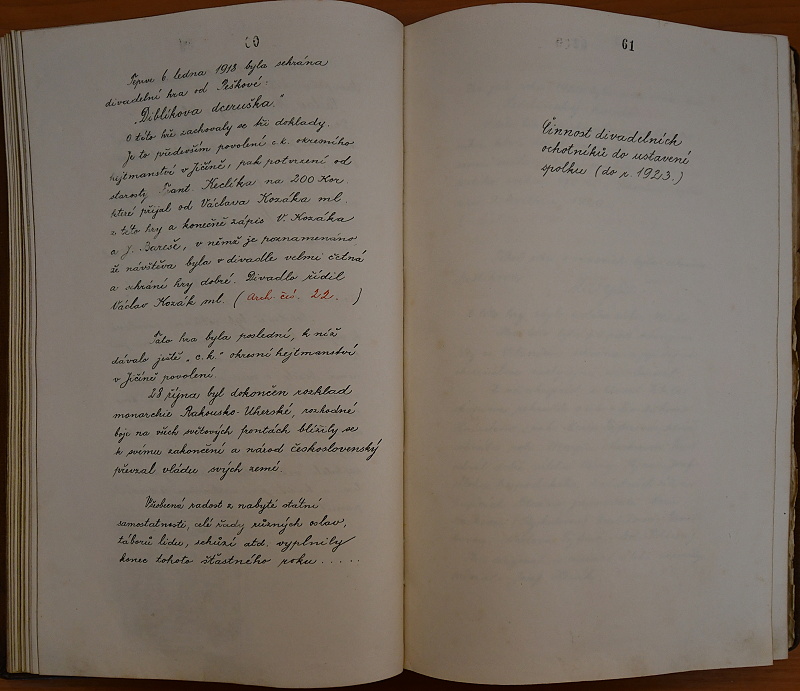 60
Teprve 6. ledna 1918 byla sehrána
divadelní hra od Peškové:
„Diblíkova dceruška."
O této hře zachovaly se tři doklady.
Je to především povolení c.k. okresního
hejtmanství v Jičíně, pak potvrzení od
starosty Frant. Keclíka na 200 Kor.
které přijal od Václava Kozáka ml.
z této hry a konečně zápis V. Kozáka
a J. Bareše, v němž je poznamenáno
že návštěva byla v divadle velmi četná
a sehrání hry dobré. Divadlo řídil
Václav Kozák ml. (Arch. čís. 22. )
Tato hra byla poslední, k níž
dávalo ještě „c.k." okresní hejtmanství
v Jičíně povolení.
28 října byl dokončen rozklad
monarchie Rakousko-Uherské, rozhodné
boje na všech světových frontách blížily se
k svému zakončení a národ československý
převzal vládu svých zemí.
Všeobecná radost z nabyté státní
samostatnosti, celé řady různých oslav,
táborů lidu, schůzí atd. vyplnily
konec tohoto šťastného roku.....
61
Činnost divadelních
ochotníků do ustavení
spolku (do r. 1923.)